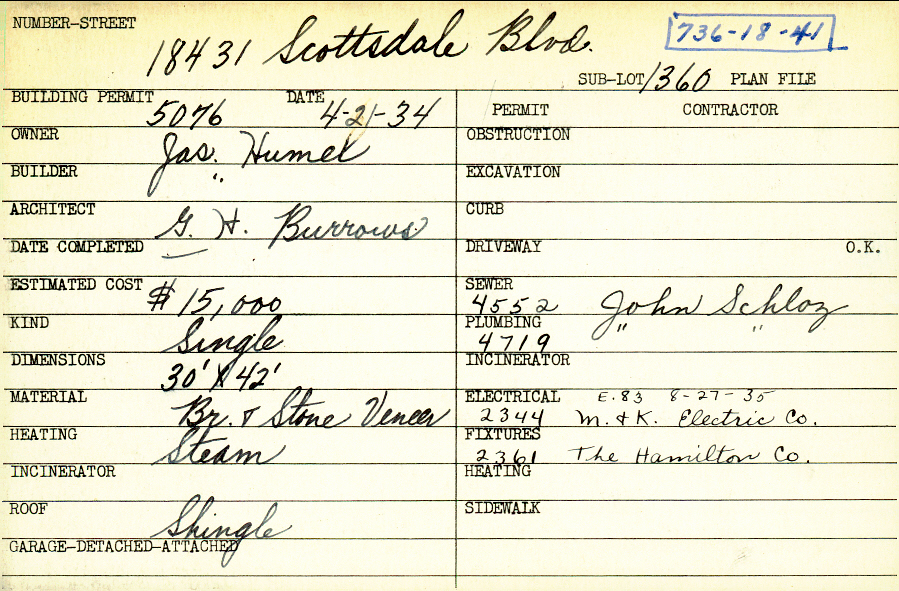 NUMBER-STREET
18431 Scottsdale Blvd.
736-18-41
SUB-LOT 1360 PLAN FILE
BUILDING PERMIT 5076 DATE 4-21-34
PERMIT CONTRACTOR
OWNER Jas. Humel
OBSTRUCTION
BUILDER "
EXCAVATION
ARCHITECT G. H. Burrows
CURB
DATE COMPLETED —
DRIVEWAY O.K.
ESTIMATED COST $15,000
SEWER 4552 John Schloz
KIND Single
PLUMBING 4719 " "
DIMENSIONS 30' X 42'
INCINERATOR
MATERIAL Br. & Stone Veneer
ELECTRICAL E.83 8-27-35
2344 M. & K. Electric Co.
HEATING Steam
FIXTURES 2361 The Hamilton Co.
INCINERATOR
HEATING
ROOF Shingle
SIDEWALK
GARAGE-DETACHED-ATTACHED